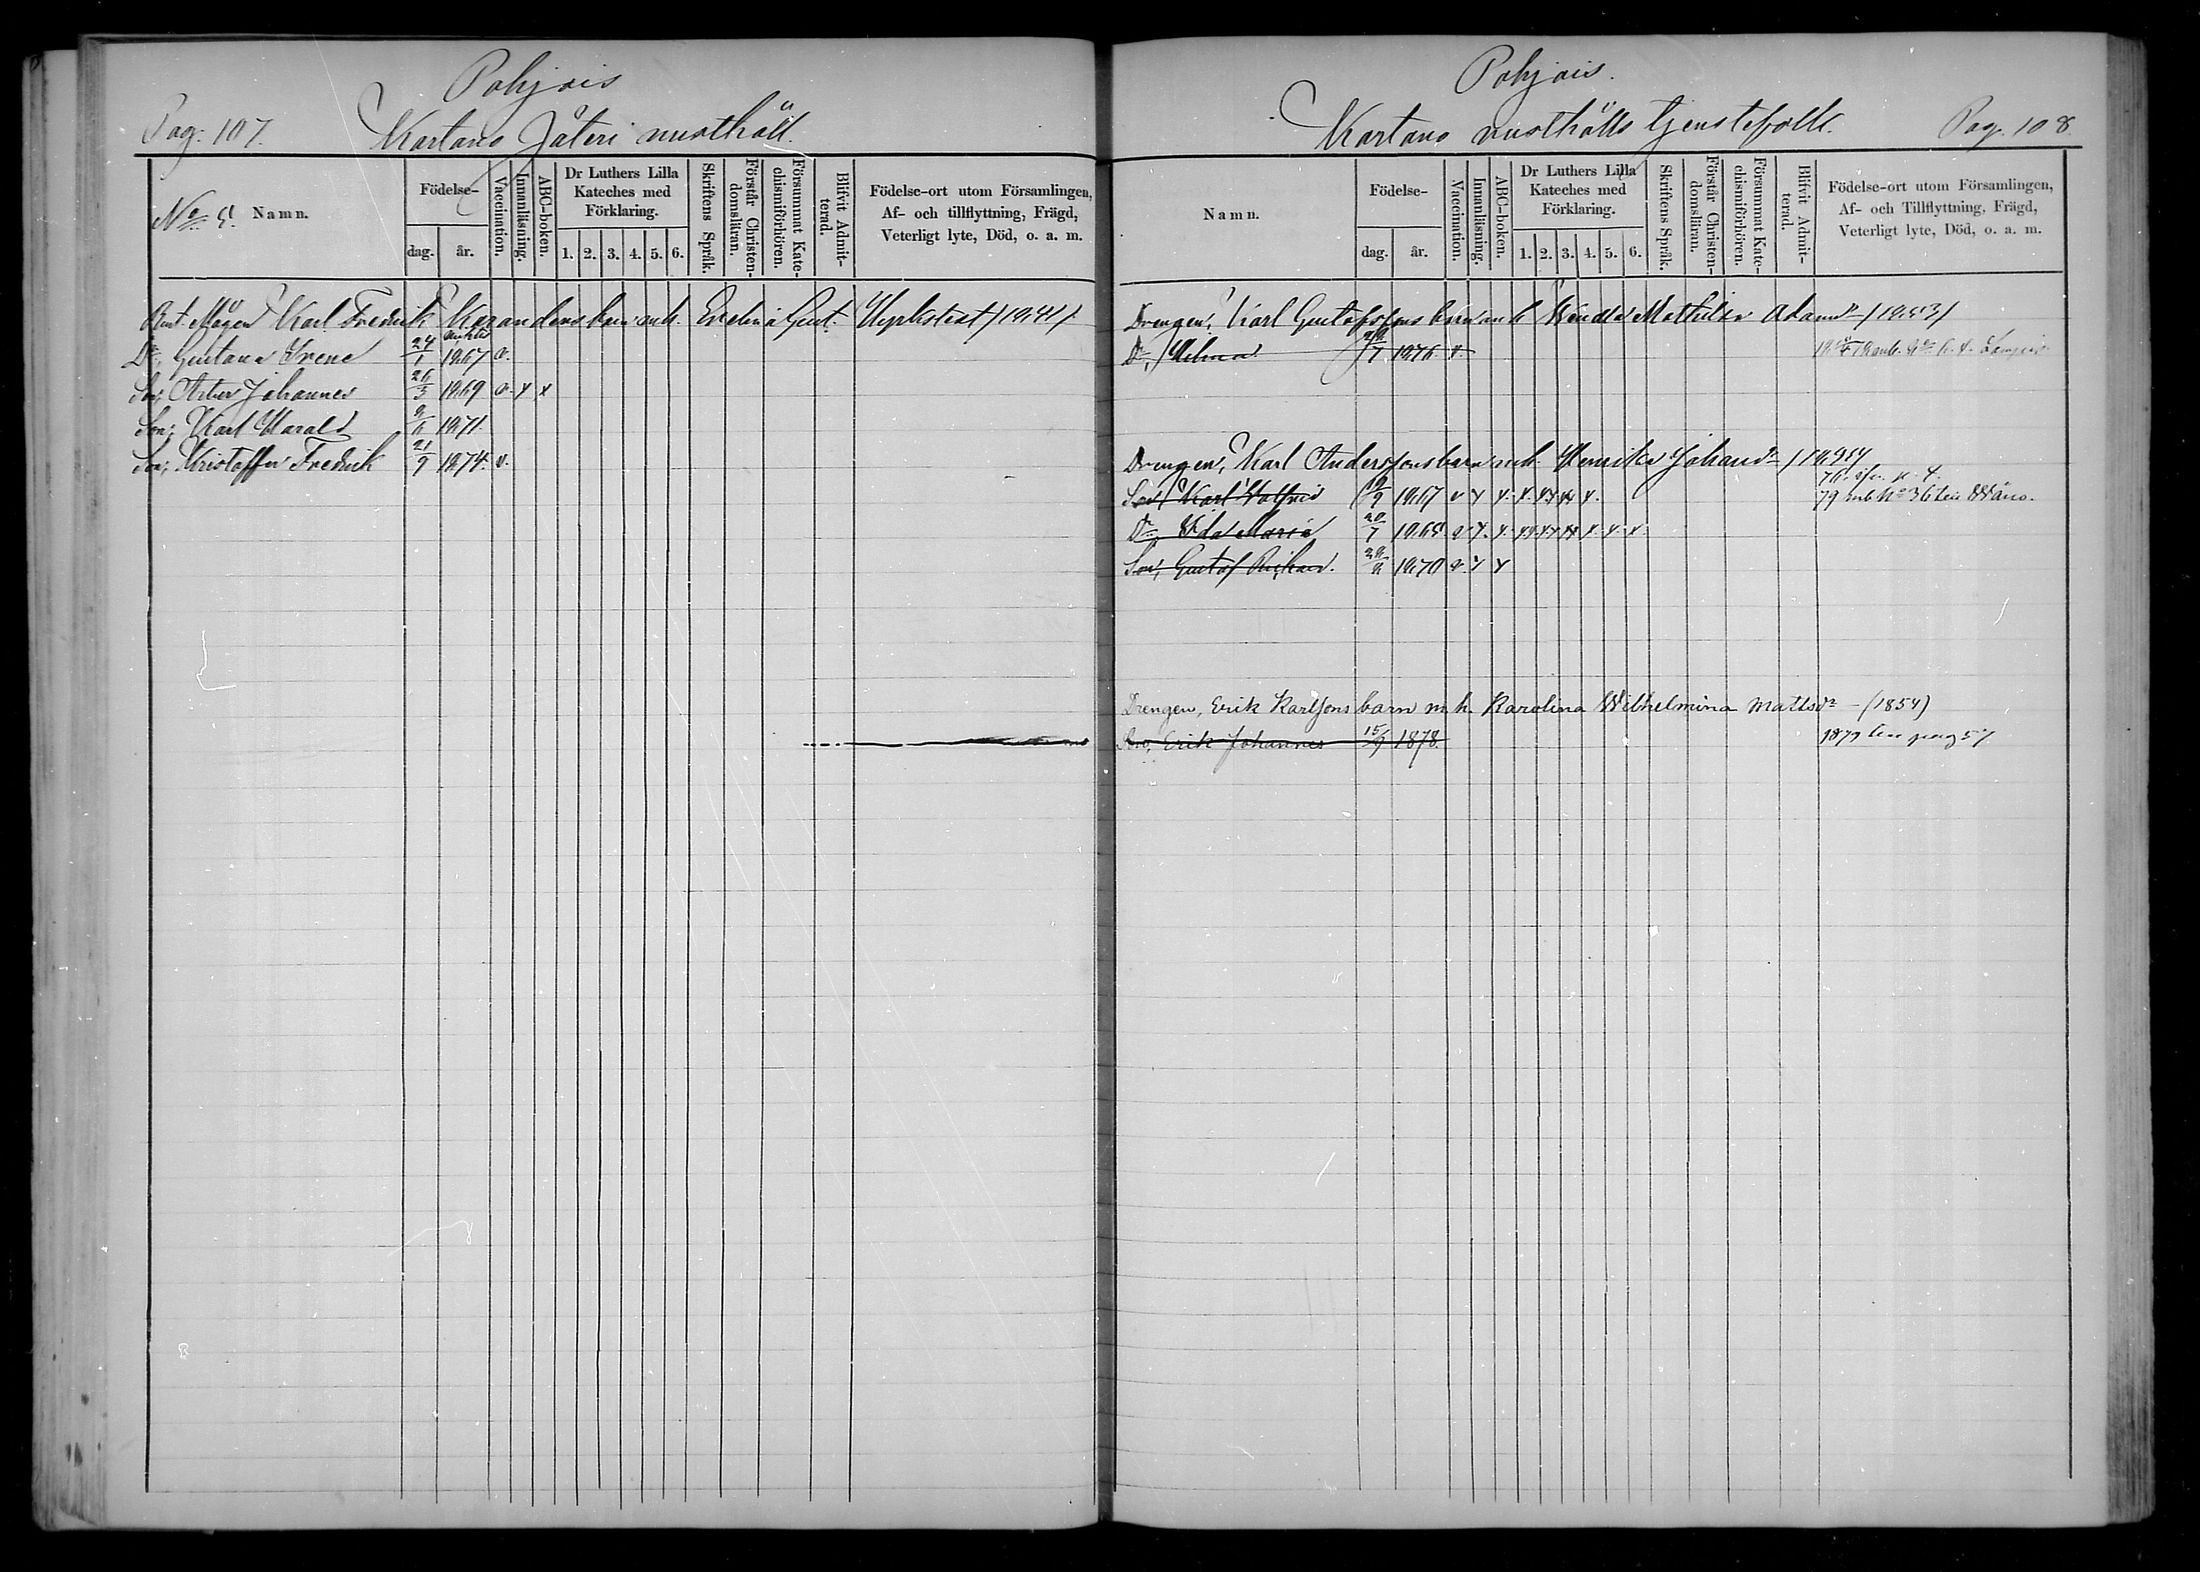 Pohjois
Pag: 107.
Kartano Säteri rusthåll.
No 5.
Namn.
Födelse-
dag.
år.
Vaccination.
Innanläsning.
ABC-boken.
Dr Luthers Lilla
Kateches med
Förklaring.
1. 2. 3. 4. 5. 6.
Skriftens Språk.
Förstår Christen-
domsläran.
Försummat Kate-
chismiförhören.
Blifvit Admit-
terad.
Födelse-ort utom Församlingen,
Af- och tillflyttning, Frägd,
Veterligt lyte, Död, o. a. m.
Karl Fredrik barn m. h. Evelina
Dr, Gustava Irene 24/1 1867 v.
Son, Artur Johannes 26/3 1869 v. x x
Son, Karl Harald 1871.
Son, Kristoffer Fredrik 21/9 1874. v.
Pohjois.
Kartano rusthålls tjenstefolk.
Pag. 108.
Namn.
Födelse-
dag.
år.
Vaccination.
Innanläsning.
ABC-boken.
Dr Luthers Lilla
Kateches med
Förklaring.
1. 2. 3. 4. 5. 6.
Skriftens Språk.
Förstår Christen-
domsläran.
Försummat Kate-
chismiförhören.
Blifvit Admit-
terad.
Födelse-ort utom Församlingen,
Af- och Tillflyttning, Frägd,
Veterligt lyte, Död, o. a. m.
Drengen, Karl Gustafssons barn m h Wendla Mathilda Adamsdr /1853/
Dr, Hilma 1876. v.
Drengen, Karl Anderssons barn m. h. Henrika Johansdr
Son, Karl Walfrid 1867 v x x. x. xx xx x.
79 No 36
Dr Ida Maria 20/7 1868 v x. x. xx. xx xx x. x. x.
Son, Gustaf Rikard. 1870 v. x x
Drengen, Erik Karlssons barn m. h. Karolina Wilhelmina Mattsdr - (1854)
Son, Erik Johannes 15/9 1878.
1879 till pag 57